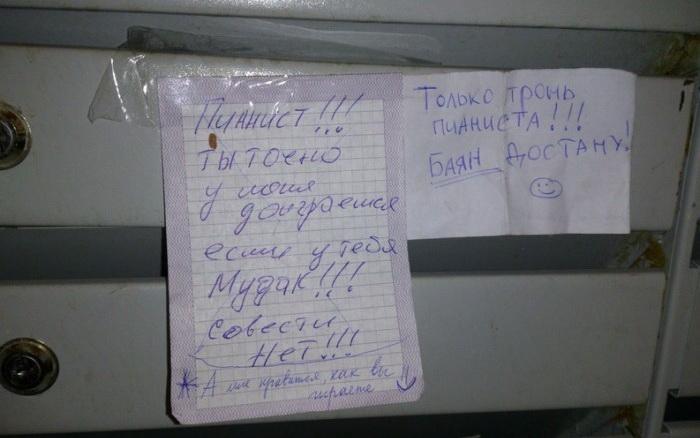 ПИАНИСТ!!!
ТЫ ТОЧНО
у меня
доиграешся
если у тебя
Мудак!!!
совести
НЕТ!!!
А мне нравится, как вы
играете
ТОЛЬКО ТРОНЬ
ПИАНИСТА!!!
БАЯН ДОСТАНУ!